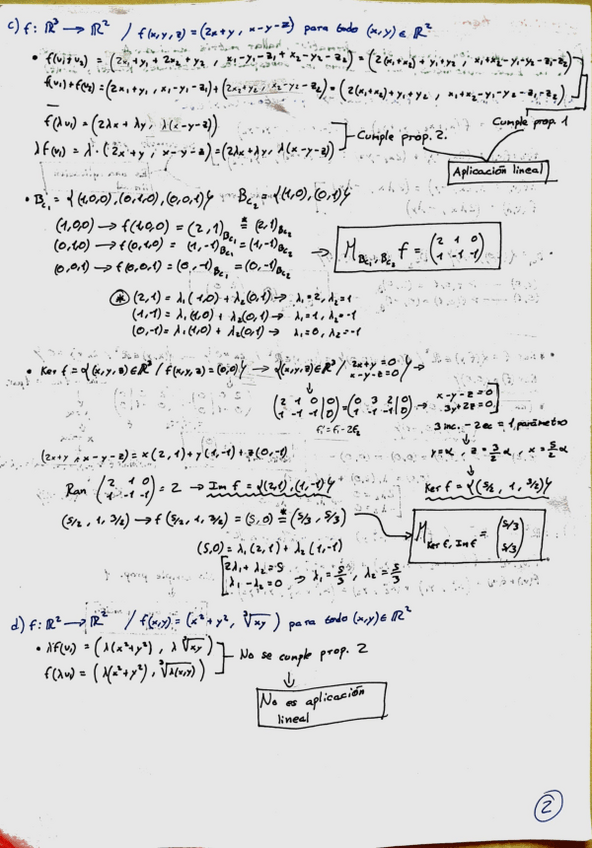 c) f: ℝ³ → ℝ² / f(x,y,z) = (2x+y, x-y-z) para todo (x,y) ∈ ℝ²
• f(v₁+v₂) = (2x₁+y₁+2x₂+y₂, x₁-y₁-z₁+x₂-y₂-z₂) = (2(x₁+x₂)+y₁+y₂, x₁+x₂-y₁-y₂-z₁-z₂)
f(v₁)+f(v₂) = (2x₁+y₁, x₁-y₁-z₁)+(2x₂+y₂, x₂-y₂-z₂) = (2(x₁+x₂)+y₁+y₂, x₁+x₂-y₁-y₂-z₁-z₂)
Cumple prop. 1
f(λv₁) = (2λx+λy, λ(x-y-z))
λf(v₁) = λ·(2x+y, x-y-z) = (2λx+λy, λ(x-y-z))
Cumple prop. 2.
Aplicación lineal
• B_C₁ = {(1,0,0),(0,1,0),(0,0,1)} B_C₂ = {(1,0),(0,1)}
(1,0,0) → f(1,0,0) = (2,1)_BC₁ =* (2,1)_BC₂
(0,1,0) → f(0,1,0) = (1,-1)_BC₁ = (1,-1)_BC₂
(0,0,1) → f(0,0,1) = (0,-1)_BC₁ = (0,-1)_BC₂
→ M_BC₁,BC₂ f = (2 1 0 / 1 -1 -1)
⊛ (2,1) = λ₁(1,0)+λ₂(0,1) → λ₁=2, λ₂=1
(1,-1) = λ₁(1,0)+λ₂(0,1) → λ₁=1, λ₂=-1
(0,-1) = λ₁(1,0)+λ₂(0,1) → λ₁=0, λ₂=-1
• Ker f = {(x,y,z)∈ℝ³ / f(x,y,z) = (0,0)} → {(x,y,z)∈ℝ³ / 2x+y=0 x-y-z=0} →
(2 1 0 | 0 / 1 -1 -1 | 0) = (0 3 2 | 0 / 1 -1 -1 | 0) → x-y-z=0 3y+2z=0
F₁=F₁-2F₂
3 inc. - 2 ec = 1 parámetro
y=α, z=3/2 α, x=5/2 α
(2x+y, x-y-z) = x(2,1)+y(1,-1)+z(0,-1)
Ran (2 1 0 / 1 -1 -1) = 2 → Im f = {(2,1),(1,-1)}
Ker f = {(5/2, 1, 3/2)}
(5/2, 1, 3/2) → f(5/2, 1, 3/2) = (5,0) =* (5/3, 5/3)
M_Ker f, Im f = (5/3 / 5/3)
(5,0) = λ₁(2,1)+λ₂(1,-1)
[2λ₁+λ₂=5
λ₁-λ₂=0 → λ₁=5/3, λ₂=5/3
d) f: ℝ² → ℝ² / f(x,y) = (x²+y², ∛xy) para todo (x,y)∈ℝ²
• λf(v₁) = (λ(x²+y²), λ∛xy)
f(λv₁) = (λ(x²+y²), ∛λ(x,y))
No se cumple prop. 2
No es aplicación
lineal
2